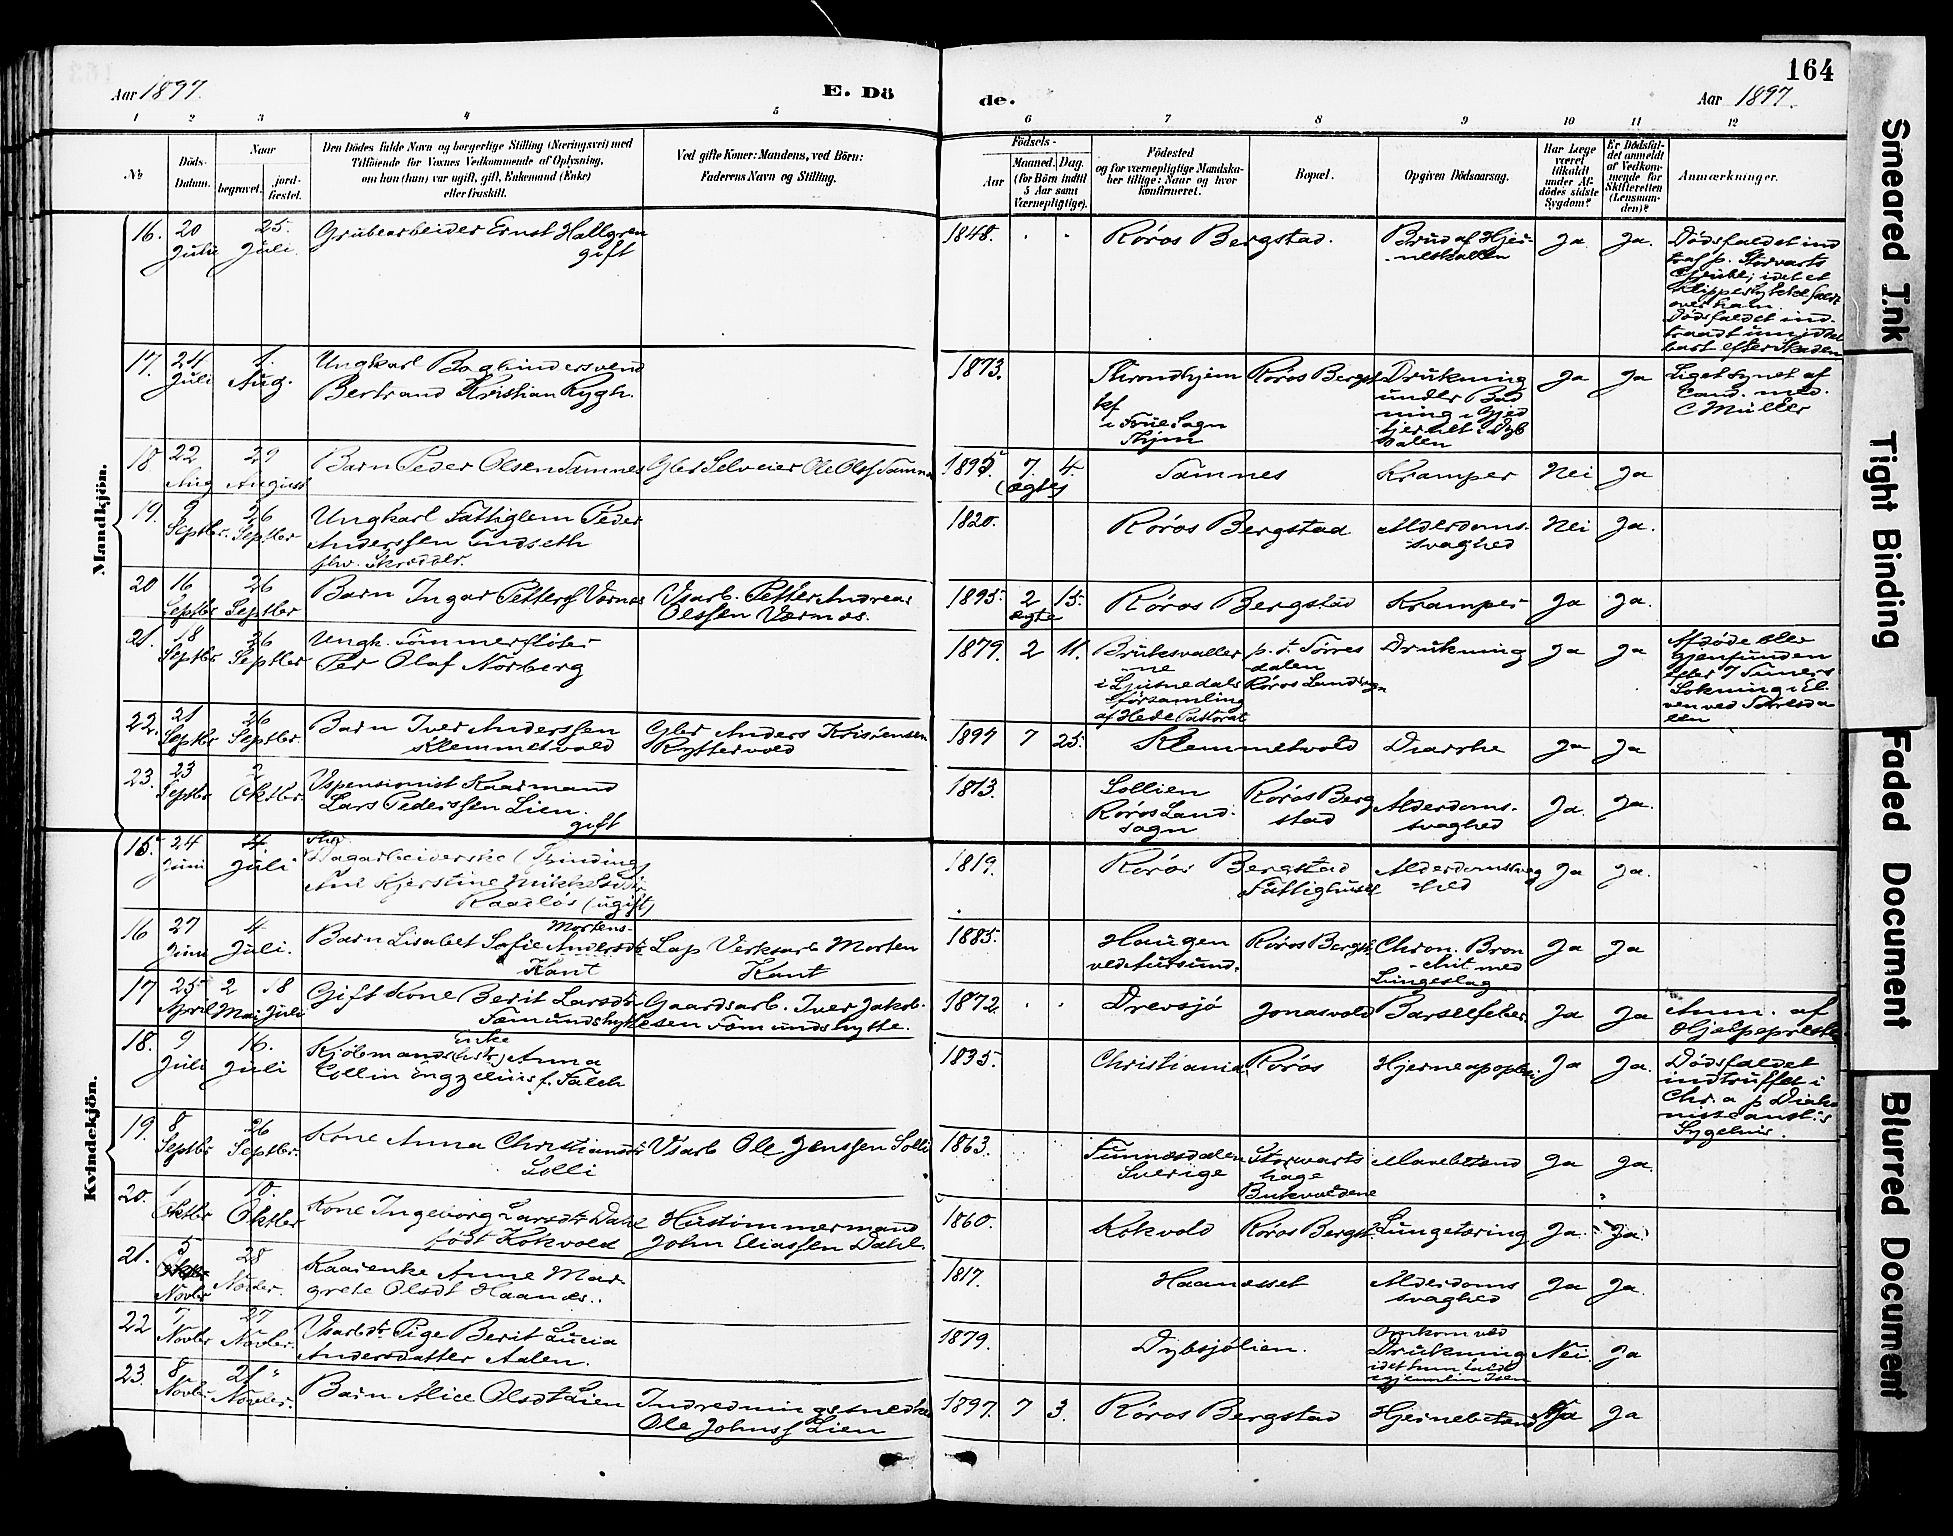 164
Aar 1897.
E. Dö
de.
Aar 1897.
1 2 3 4 5 6 7 8 9 10 11 12
№
Döds-
Datum.
Naar
begravet.
jord-
fæstet.
Den Dödes fulde Navn og borgerlige Stilling (Næringsvei) med
Tilföiende for Voxnes Vedkommende af Oplysning,
om han (hun) var ugift, gift, Enkemand (Enke)
eller fraskilt.
Ved gifte Koner: Mandens, ved Börn:
Faderens Navn og Stilling.
Födsels-
Aar
Maaned. Dag.
(for Börn indtil
5 Aar samt
Værnepligtige).
Födested
og for værnepligtige Mandska-
ber tillige: Naar og hvor
konfirmeret.
Bopæl.
Opgiven Dödsaarsag.
Har Læge
været
tilkaldt
under Af-
dödes sidste
Sygdom?
Er Dödsfal-
det anmeldt
af Vedkom-
mende for
Skifteretten
(Lensman-
den)?
Anmærkninger.
Mandkjön.
16. 20 Juli 25. Juli. Grubearbeider Ernst Hallgren
gift
1848. Röros Bergstad. Brud af Hjer-
neskallen Ja Ja.
Dödsfaldet ind
traf p. Storvarts
Grube, idet et
Klippestykke faldt
over ham
Dödsfaldet ind-
traadt umiddel
bart efter Skaden
17. 24 Juli 1. Aug. Ungkarl Bogbindersvend
Bertrand Kristian Rygh.
1873. Throndhjem
kf
i Frue Sogn
Thjem
Röros Bergst Drukning
under Bad
ning i Gjed
tjernet i Dyb
dalen
Ja Ja
Liget synet af
Cand. med.
C Müller
18 22 Aug 29 August Barn Peder Olsen Tamnes Gbr Selveier Ole Olsf Tamnes
1895 7. 4. (ægte) Tamnes Kramper Nei Ja
19. 9 Septbr. 26 Septbr Ungkarl Fattiglem Peder
Anderssen Tudseth
fhv. Skrædder.
1820. Röros Bergstad Alderdoms-
svaghed Nei Ja.
20 16 Septbr 26 Septbr Barn Ingar Petters Værnes Vsarb. Petter Andreas
Olssen Værnes.
1895. 2 15. ægte Röros Bergstad Kramper Ja Ja.
21. 18 Septbr 26 Septbr Ungk. Tömmerflöter
Per Olaf Norberg
1879. 2 11. Bruksvaller
ne
i Ljusnedals
församling
af Hede Pastorat
p. t. Törres
dalen
Röros Landsogn
Drukning Ja Ja
Afdöde blev
gjenfunden
efter 7 Timers
Sokning i El
ven ved
22. 21 Septbr 26 Septbr. Barn Iver Anderssen
Klemmetvold
Gbr Anders Kristensen
Ryttervold
1894 7 25. Klemmetvold Diarrhe Ja Ja
23. 23 Septbr 2 Oktbr. Vspensionist Kaarmand
Lars Pederssen Lien.
gift
1813. Sollien
Röros Land-
sogn
Röros Berg
stad
Alderdoms-
svaghed Ja. Ja.
Kvindekjön.
15. 24 Juni 4. Juli
Dagarbeiderske (Trinding)
Ane Kjerstine Mikkelsdtr
Raadlös (ugift)
1819. Röros Bergstad
Fattighuset
Alderdomssvag
hed Ja Ja.
16 27 Juni 4 Juli. Mortens-
Barn Lisabet Sofie Andersdtr
Kant
Lap Verksarb Morten
Kant
1885. Haugen
ved Aursund.
Röros Bergst. Chron. Bron
chit med
Lungeslag
Ja Ja
17 25 April 2 Mai 18 Juli Gift Kone Berit Larsdtr
Fæmundshytte
Gaardsarb. Iver Jakob-
sen Fæmundshytte.
1872. Drevsjö Jonasvold Barselfeber Ja Ja
Anm. af
Hjelpeprest
18. 9 Juli 16. Juli Enke
Kjöbmands(hstr) Anna
Collin Engzelius f. Falch
1835. Christiania Röros Hjerneapoplexi Ja Ja.
Dödsfaldet
indtruffet i
Chr.a p Diako
nisseanst.'s
Sygehus.
19. 8 Septbr 26 Septbr. Kone Anna Christiansdtr
Solli
Vsarb Ole Jenssen Solli
1863. Funnesdalen
Sverige
Storwarts
hage
Bukvoldene
Mavebetænd Ja Ja.
20. 1 Oktbr 10. Oktbr Kone Ingeborg Larsdtr Dahl
födt Kokvold
Hustömmermand
John Eliassen Dahl.
1860. Kokvold Röros Bergst. Lungetæring Ja. Ja.
21. 5 Novbr 28 Novbr. Kaarenke Anne Mar
grete Olsdt Haanæs.
1817. Haanæsset Alderdoms
svaghed Ja Ja.
22 7 Novbr 27 Novbr. Vsarbdtr. Pige Berit Lucia
Andersdatter Aalen.
1879. Dybsjölien. Omkom ved
Drukning
idet hun faldt
igjennem Isen
Nei. Ja
23. 8 Novbr 21 Novbr. Barn Alice Olsdt Lien Indredningssnedker
Ole Johnsf Lien
1897. 7 3. Röros Bergstad Hjernebetænd Ja Ja
Smeared Ink
Tight Binding
Faded Document
Blurred Document